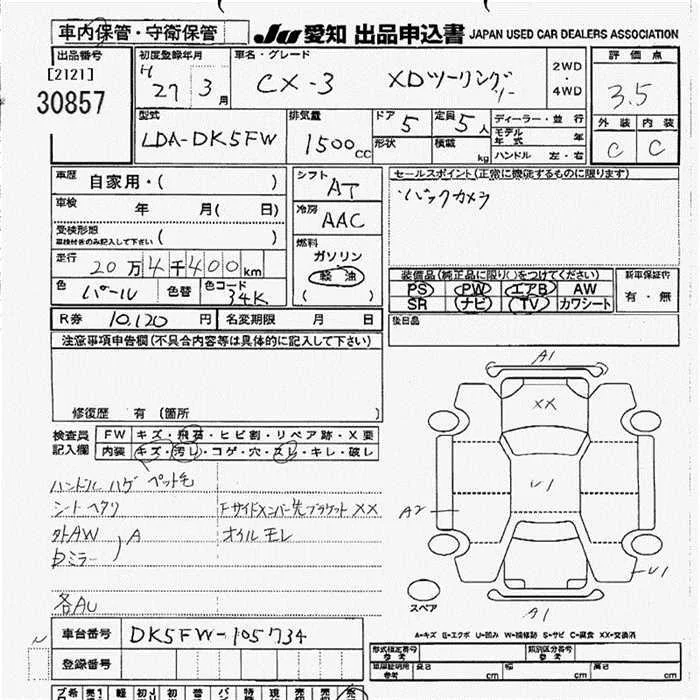 車内保管・守衛保管
JU 愛知 出品申込書 JAPAN USED CAR DEALERS ASSOCIATION
出品番号 初度登録年月 車名・グレード 2WD・4WD 評価点
[2121] H 27 3月 CX-3 XDツーリング 3.5
30857
型式 排気量 ドア 5 定員 5人 ディーラー・並行 外装 内装
LDA-DK5FW 1500cc 形状 積載 kg モデル年式 年 C C
ハンドル 左・右
車歴 自家用・( ) シフト AT セールスポイント(正常に機能するものに限ります)
車検 年 月( 日) 冷房 AAC ・バックカメラ
受検形態 ( )
車検付きのみ記入して下さい
燃料 ガソリン 軽油 ( )
走行 20万4千400km
装備品(純正品に限り○をつけてください) 新車保証書
色 パール 色替 色コード 34K PS PW エアB AW 有・無
SR ナビ TV カワシート
R券 10,120円 名変期限 月 日 後日品
注意事項申告欄(不具合内容等は具体的に記入して下さい)
修復歴 有 (箇所 )
検査員記入欄 FW キズ・飛石・ヒビ割・リペア跡・X要
内装 キズ・汚レ・コゲ・穴・スレ・キレ・破レ
ハンドル ハゲ ペット毛
シート ヘタリ Fサイドメンバー先ブラケット XX
外AW A オイル モレ
ミラー
各AU
A1
XX
U1
A2
U1
A1
スペア
A=キズ E=エクボ U=凹み W=補修跡 S=サビ C=腐食 XX=交換済
車台番号 DK5FW-105734
登録番号
形式指定番号 参考 類別区分番号 参考
車庫証明用 参考 長さ cm 幅 cm 高さ cm